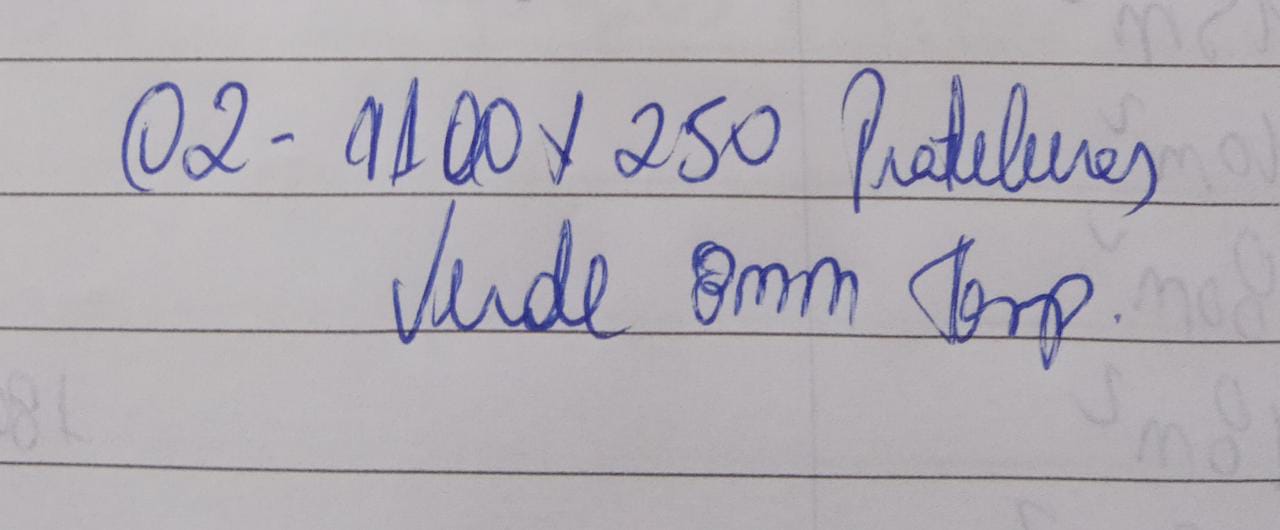 02- 1100 x 250 Prateleiras
Verde 8mm Temp.